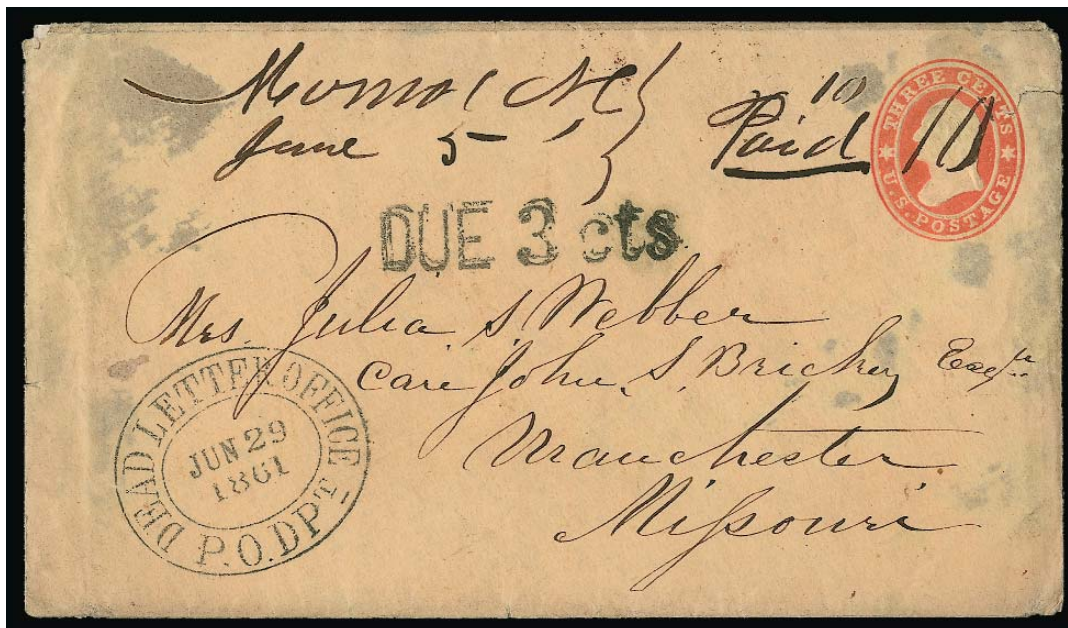 N.C.
June 5
10
Paid 10
THREE CENTS
U.S. POSTAGE
DUE 3 cts
Mrs. Julia S. Webber
Care John S. Brickey Esqr.
Manchester
Missouri
DEAD LETTER OFFICE
JUN 29
1861
P.O. DPT.